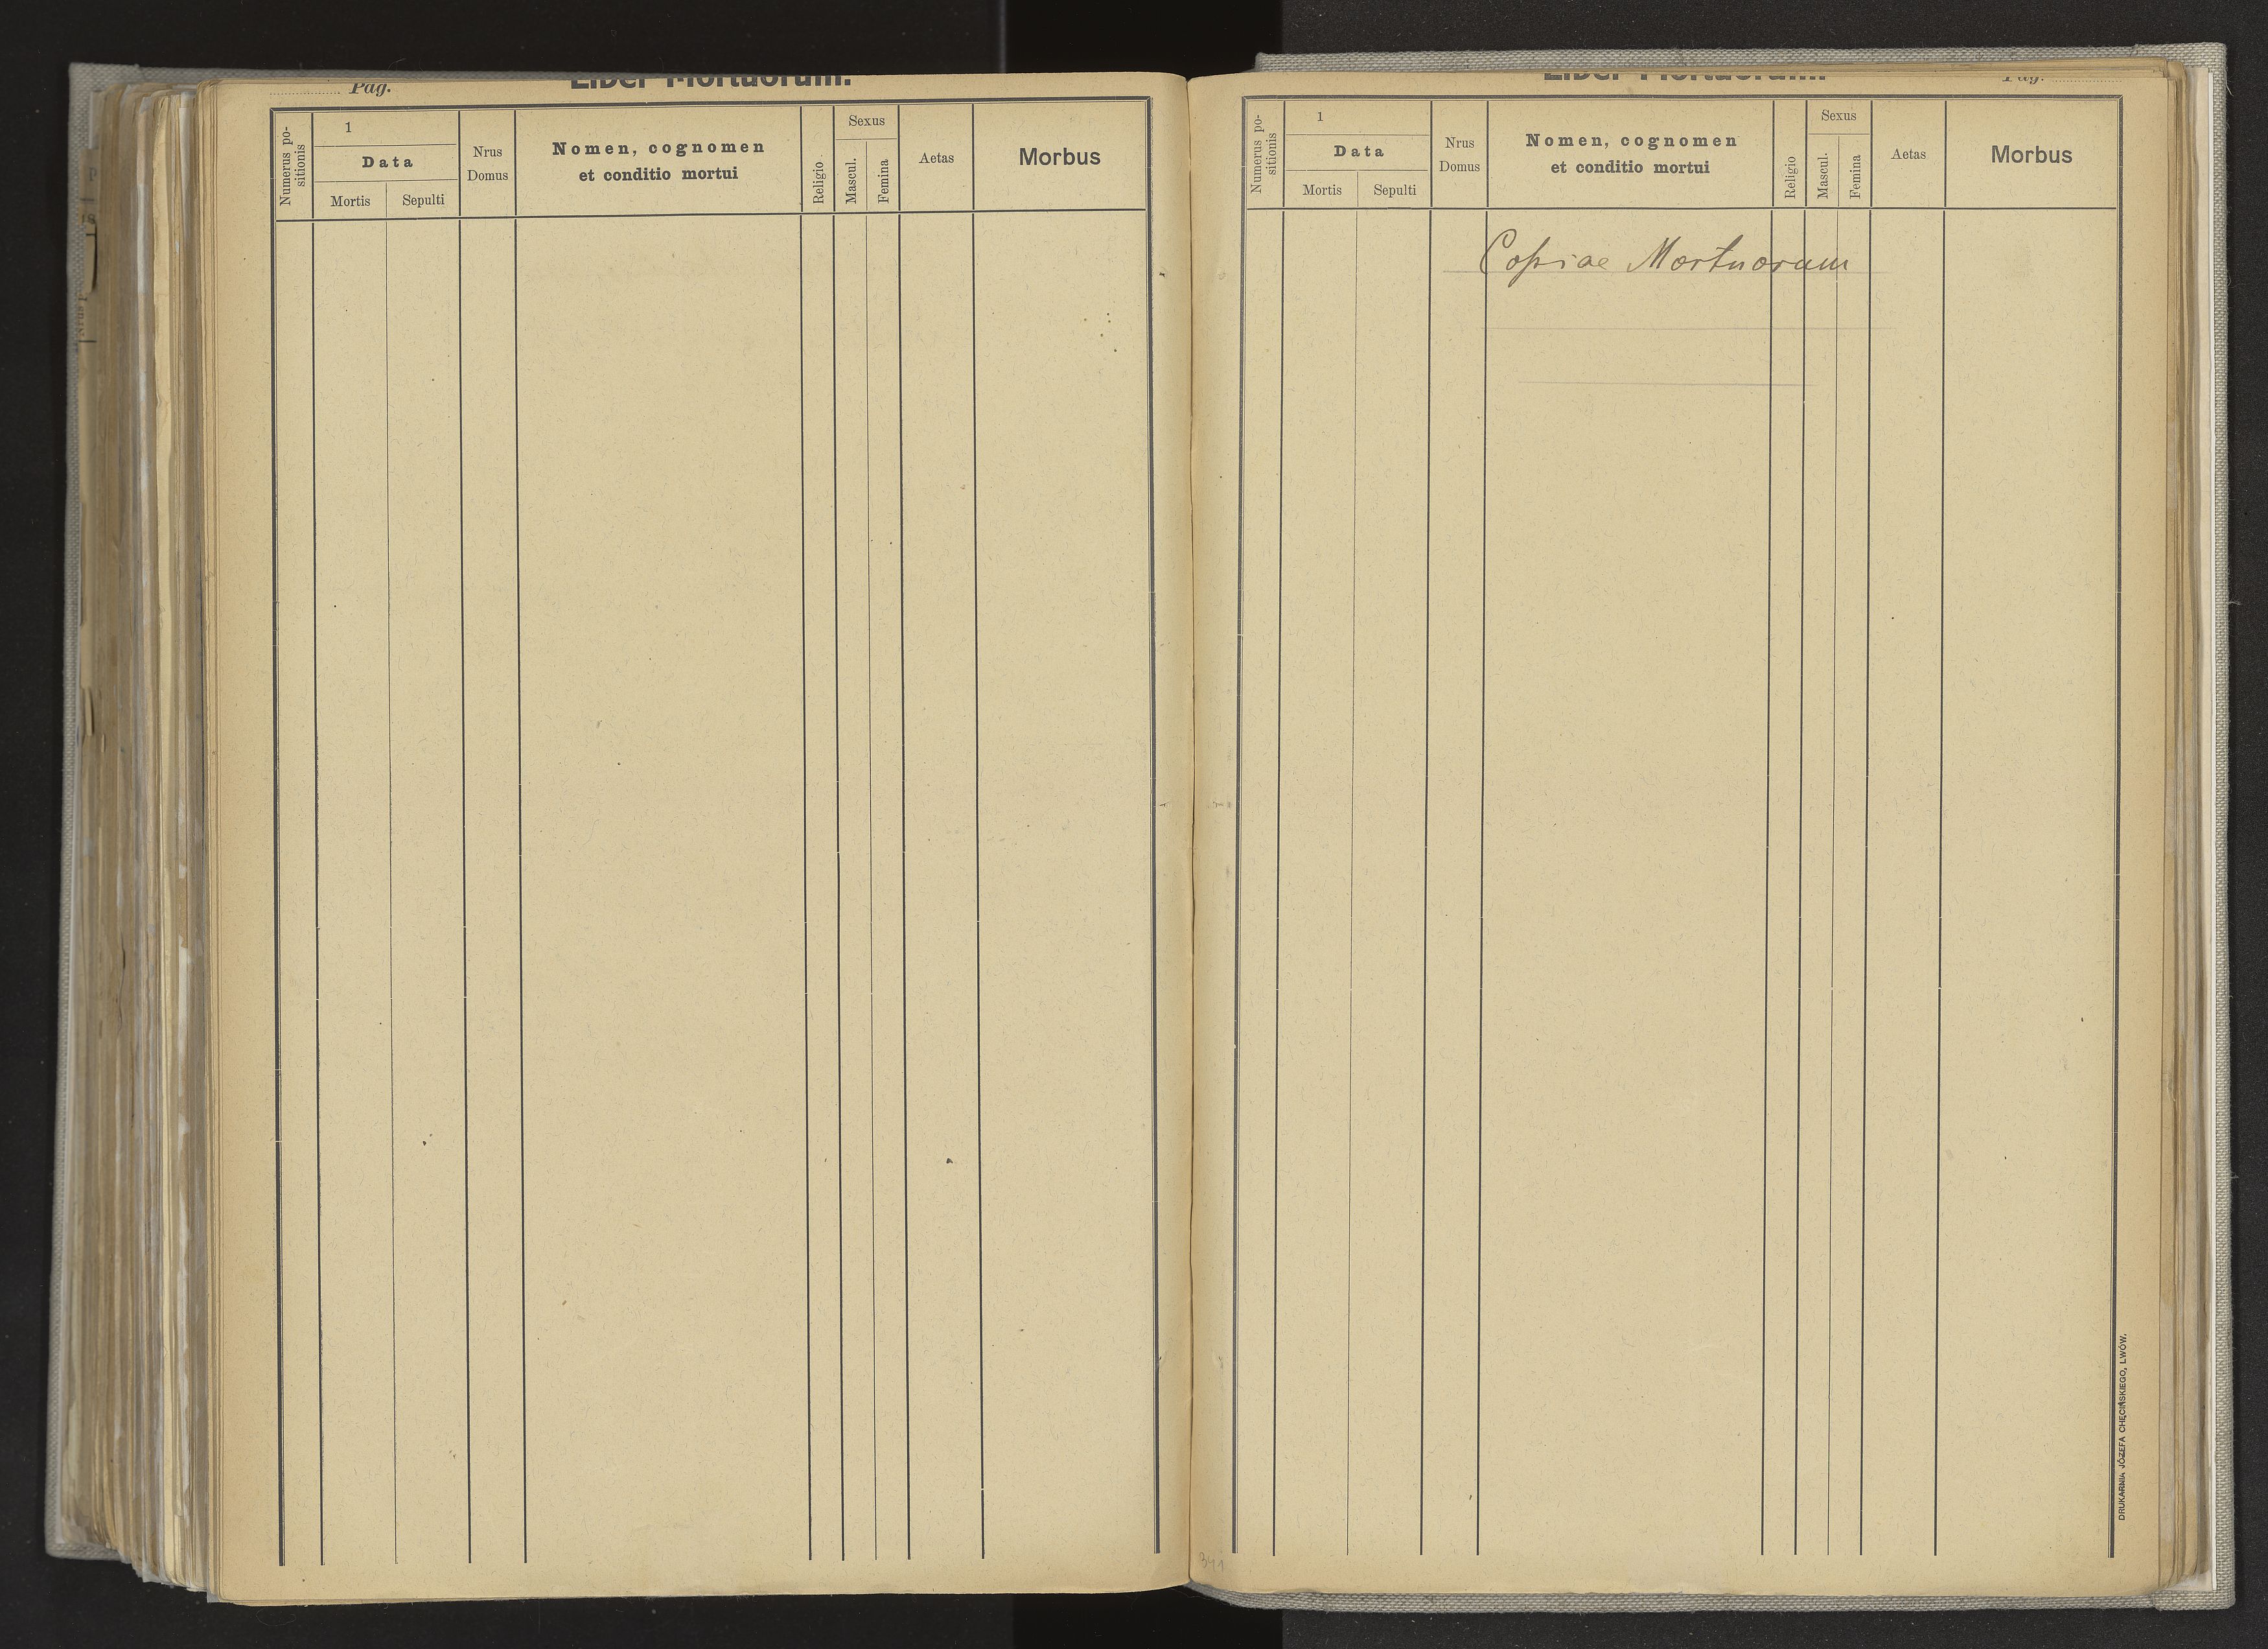 Pag.
Liber Mortuorum.
Numerus po-
sitionis
1
Data
Mortis
Sepulti
Nrus
Domus
Nomen, cognomen
et conditio mortui
Religio
Sexus
Mascul.
Femina
Aetas
Morbus
Liber Mortuorum.
Pag.
Numerus po-
sitionis
1
Data
Mortis
Sepulti
Nrus
Domus
Nomen, cognomen
et conditio mortui
Religio
Sexus
Mascul.
Femina
Aetas
Morbus
Copiae Mortuorum
DRUKARNIA JÓZEFA CHĘCIŃSKIEGO, LWÓW.
341